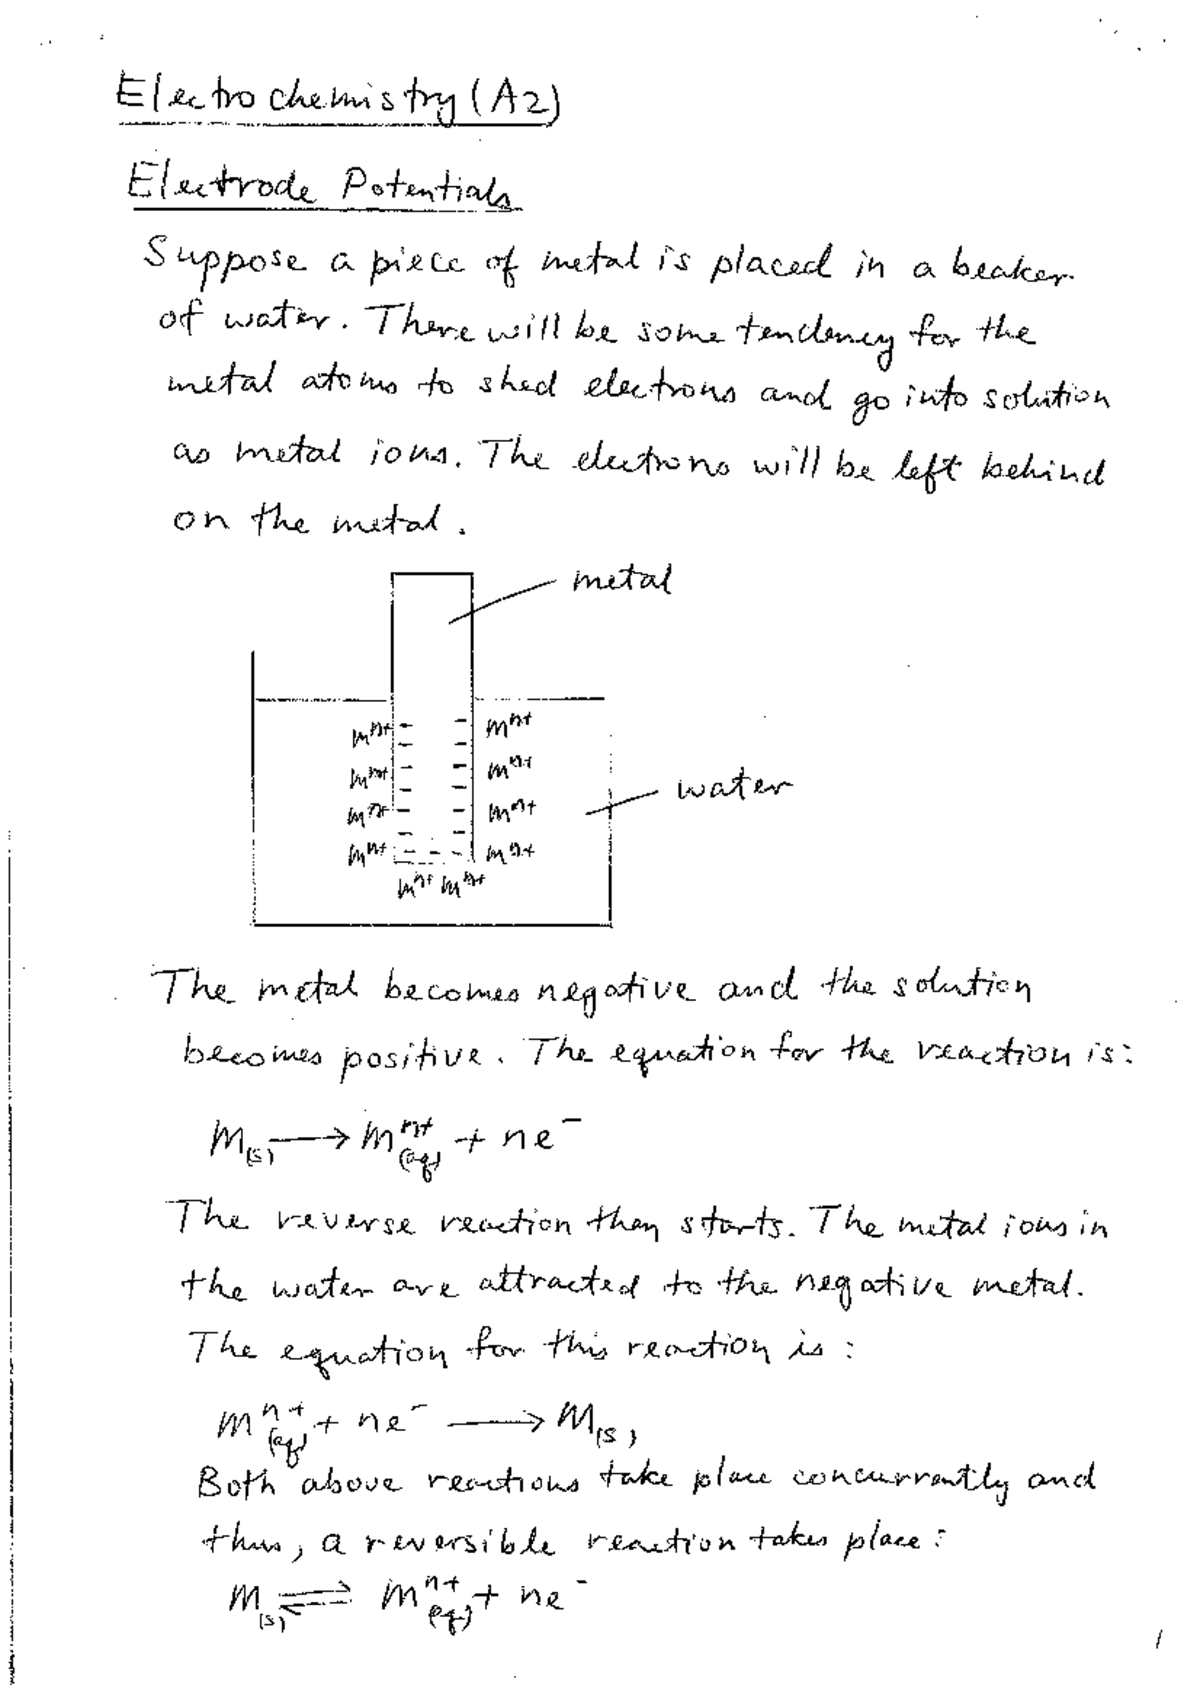 Electrochemistry (A2)
Electrode Potentials
Suppose a piece of metal is placed in a beaker
of water. There will be some tendency for the
metal atoms to shed electrons and go into solution
as metal ions. The electrons will be left behind
on the metal.
metal
Mⁿ⁺ - - Mⁿ⁺
Mⁿ⁺ - - Mⁿ⁺
water
Mⁿ⁺ - - Mⁿ⁺
Mⁿ⁺ - - - - Mⁿ⁺
Mⁿ⁺ Mⁿ⁺
The metal becomes negative and the solution
becomes positive. The equation for the reaction is:
M(s) → Mⁿ⁺(aq) + ne⁻
The reverse reaction then starts. The metal ions in
the water are attracted to the negative metal.
The equation for this reaction is:
Mⁿ⁺(aq) + ne⁻ → M(s)
Both above reactions take place concurrently and
thus, a reversible reaction takes place:
M(s) ⇌ Mⁿ⁺(aq) + ne⁻
1